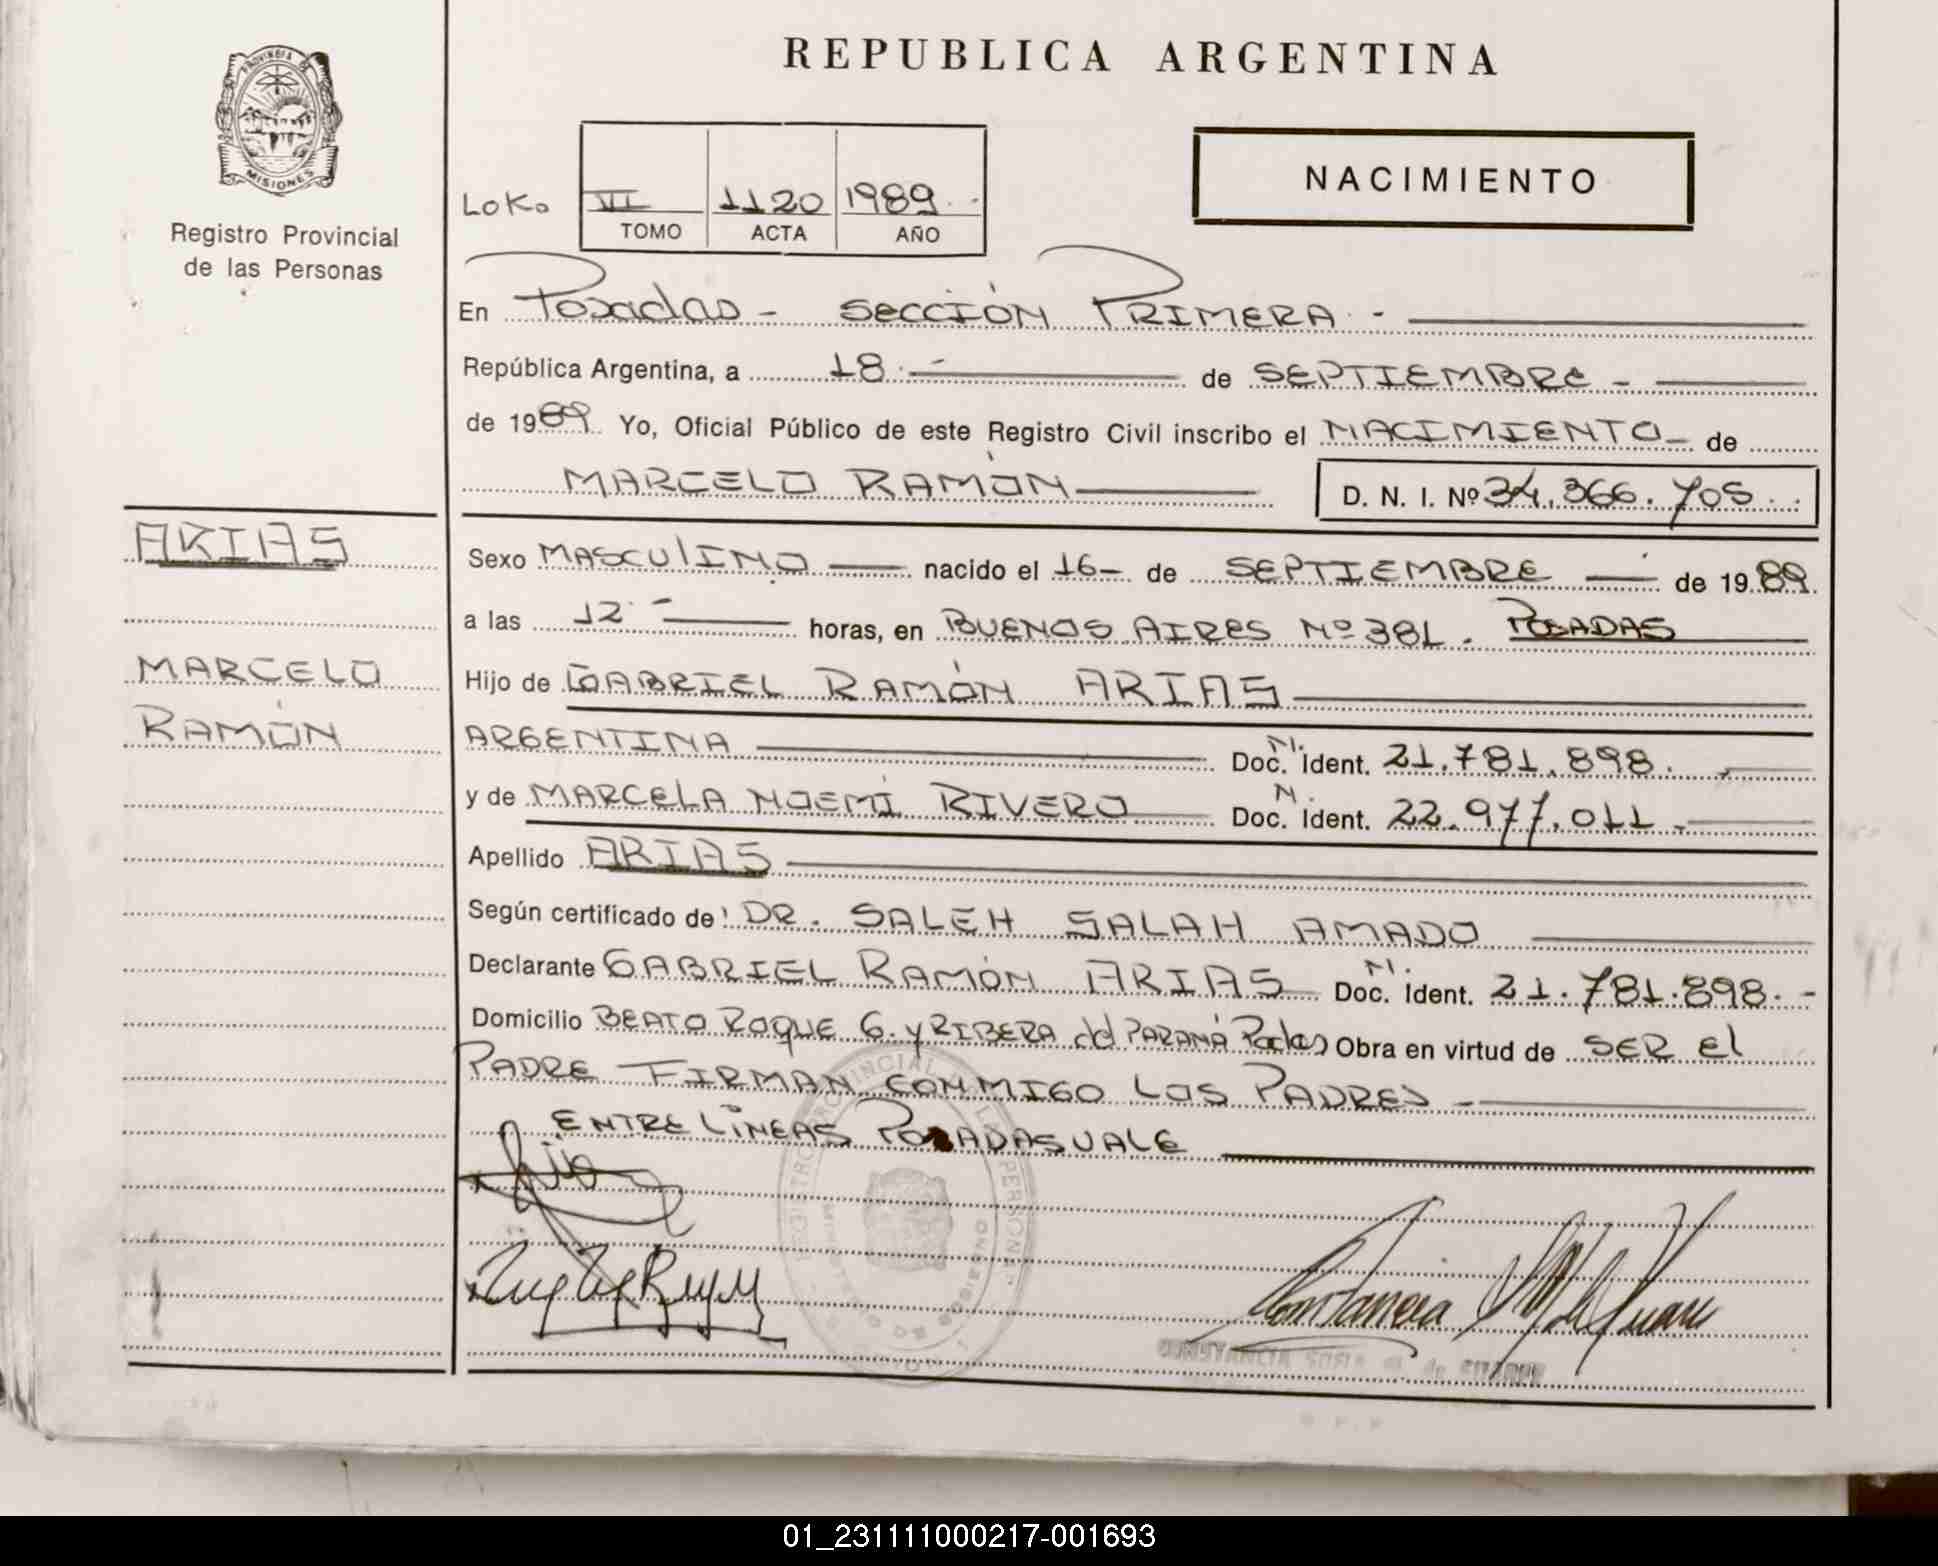 REPUBLICA ARGENTINA
PROVINCIA DE
MISIONES
Registro Provincial
de las Personas
NACIMIENTO
LoKo VI 1120 1989
TOMO ACTA AÑO
En Posadas - SECCIÓN PRIMERA -
República Argentina, a 18 - de SEPTIEMBRE -
de 1989 Yo, Oficial Público de este Registro Civil inscribo el NACIMIENTO - de
MARCELO RAMÓN D. N. I. Nº 34.366.705
ARIAS
MARCELO
RAMÓN
Sexo MASCULINO nacido el 16 - de SEPTIEMBRE de 1989
a las 12 horas, en BUENOS AIRES Nº 381. POSADAS
Hijo de GABRIEL RAMÓN ARIAS
ARGENTINA Doc. N. Ident. 21.781.898.
y de MARCELA NOEMÍ RIVERO Doc. N. Ident. 22.977.011 -
Apellido ARIAS
Según certificado de: DR. SALEH SALAH AMADO
Declarante GABRIEL RAMÓN ARIAS Doc. N. Ident. 21.781.898. -
Domicilio BEATO ROQUE G. y RIBERA del PARANÁ Posadas Obra en virtud de SER El
PADRE FIRMAN CONMIGO LOS PADRES -
ENTRE LÍNEAS POSADAS VALE
REGISTRO PROVINCIAL DE LAS PERSONAS
01_231111000217-001693